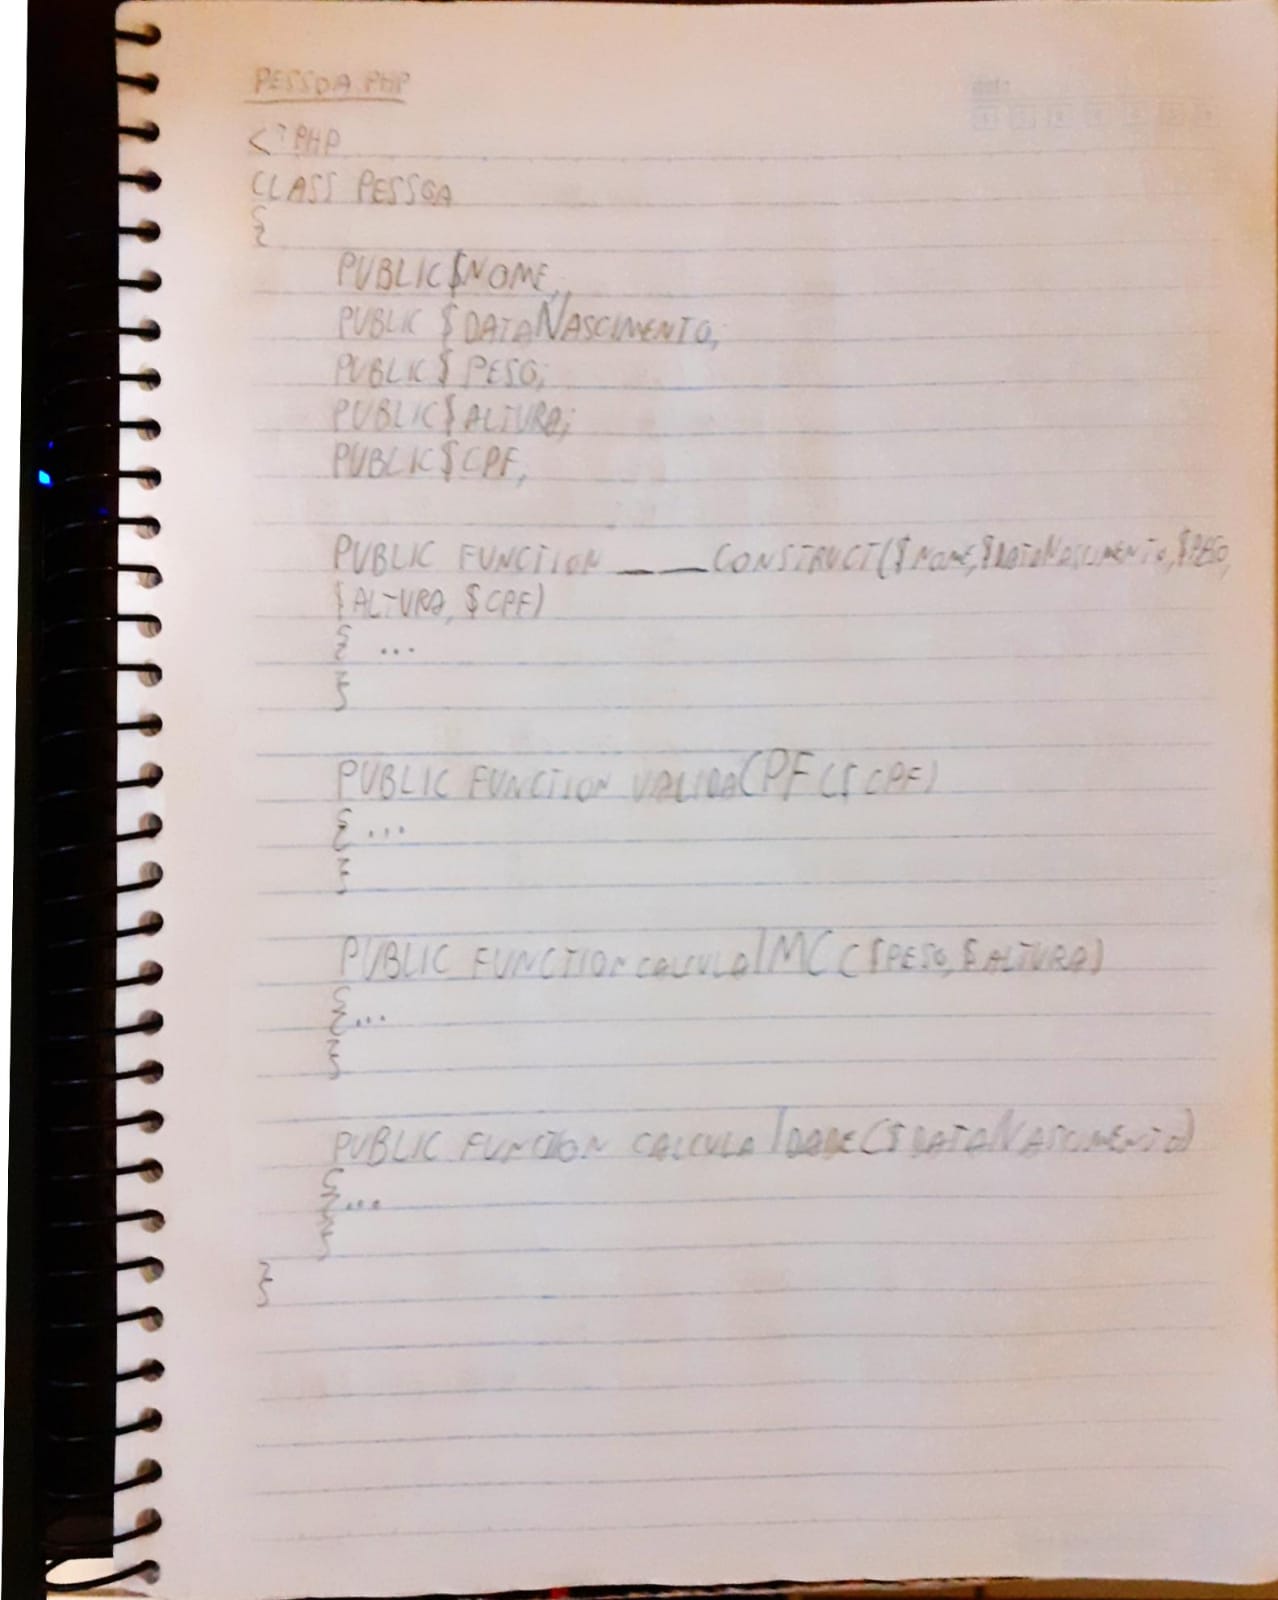 PESSOA.PHP
<?PHP
CLASS PESSOA
{
PUBLIC $NOME;
PUBLIC $DATANASCIMENTO;
PUBLIC $PESO;
PUBLIC $ALTURA;
PUBLIC $CPF;
PUBLIC FUNCTION __CONSTRUCT($NOME,$DATANASCIMENTO,$PESO,
$ALTURA, $CPF)
{ ...
}
PUBLIC FUNCTION VALIDACPF($CPF)
{ ...
}
PUBLIC FUNCTION CALCULAIMC($PESO, $ALTURA)
{ ...
}
PUBLIC FUNCTION CALCULAIDADE($DATANASCIMENTO)
{ ...
}
}